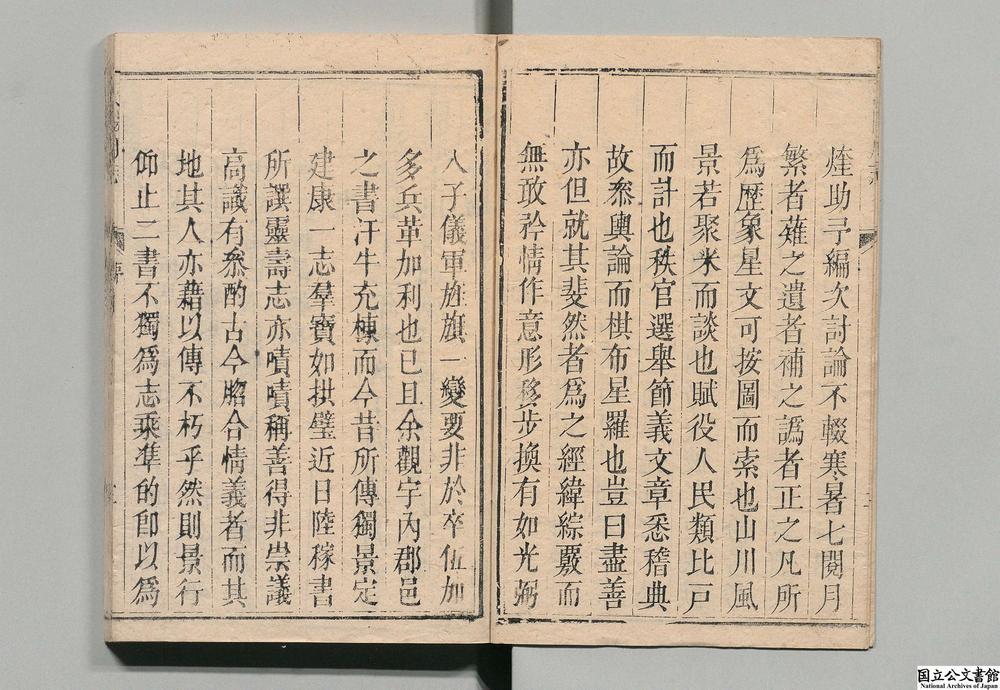 煃助予編次討論不輟寒暑七閱月
繁者薙之遺者補之譌者正之凡所
爲歷象星文可按圖而索也山川風
景若聚米而談也賦役人民類比戸
而計也秩官選舉節義文章悉稽典
故叅輿論而棋布星羅也豈曰盡善
亦但就其斐然者爲之經緯綜覈而
無敢矜情作意形移步換有如光弼
入子儀軍旌旗一變要非於卒伍加
多兵革加利也已且余觀宇內郡邑
之書汗牛充棟而今昔所傳獨景定
建康一志羣寶如拱璧近日陸稼書
所譔靈壽志亦嘖嘖稱善得非崇議
高識有叅酌古今脗合情義者而其
地其人亦藉以傳不朽乎然則景行
仰止二書不獨爲志乘準的卽以爲
国立公文書館
National Archives of Japan